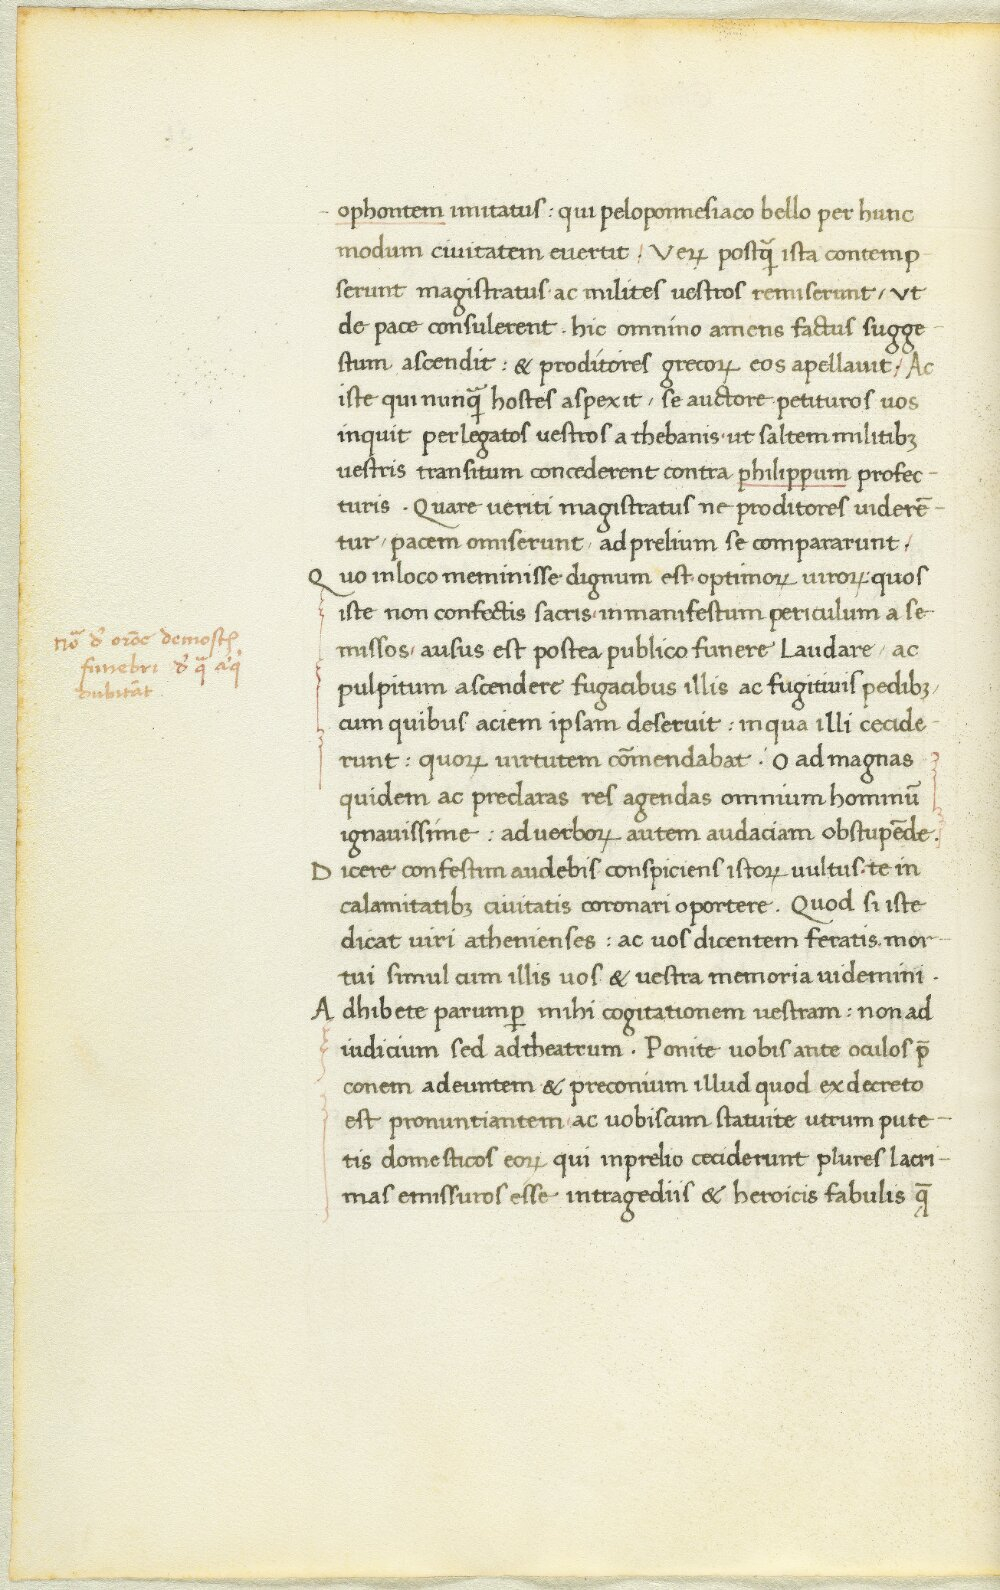 ophontem imitatus : qui peloponnesiaco bello per hunc
modum ciuitatem euertit / Veꝝ postq̃ ista contemp-
serunt magistratus ac milites uestros remiserunt / vt
de pace consulerent . hic omnino amens factus sugge-
stum ascendit : & proditores grecoꝝ eos apellauit / Ac
iste qui nunq̃ hostes aspexit / se auctore petituros uos
inquit per legatos uestros a thebanis ut saltem militibꝫ
uestris transitum concederent contra philippum profec-
turis . Quare ueriti magistratus ne proditores uiderē-
tur / pacem omiserunt / ad prelium se compararunt /
Quo in loco meminisse dignum est optimoꝝ uiroꝝ quos
iste non confectis sacris in manifestum periculum a se
missos / ausus est postea publico funere Laudare / ac
pulpitum ascendere fugacibus illis ac fugitiuis pedibꝫ /
cum quibus aciem ipsam deseruit : in qua illi cecide-
runt : quoꝝ uirtutem cōmendabat . O ad magnas
quidem ac preclaras res agendas omnium hominū
ignauissime : ad uerboꝝ autem audaciam obstupēde .
Dicere confestim audebis conspiciens istoꝝ uultus te in
calamitatibꝫ ciuitatis coronari oportere . Quod si iste
dicat uiri athenienses : ac uos dicentem feratis mor-
tui simul cum illis uos & uestra memoria uidemini .
Adhibete parumꝑ mihi cogitationem uestram : non ad
iudicium sed ad theatrum . Ponite uobis ante oculos p̄
conem adeuntem & preconium illud quod ex decreto
est pronuntiantem ac uobiscum statuite utrum pute-
tis domesticos eoꝝ qui in prelio ceciderunt plures lacri-
mas emissuros esse in tragediis & heroicis fabulis q̄
orōe demosth
funebri